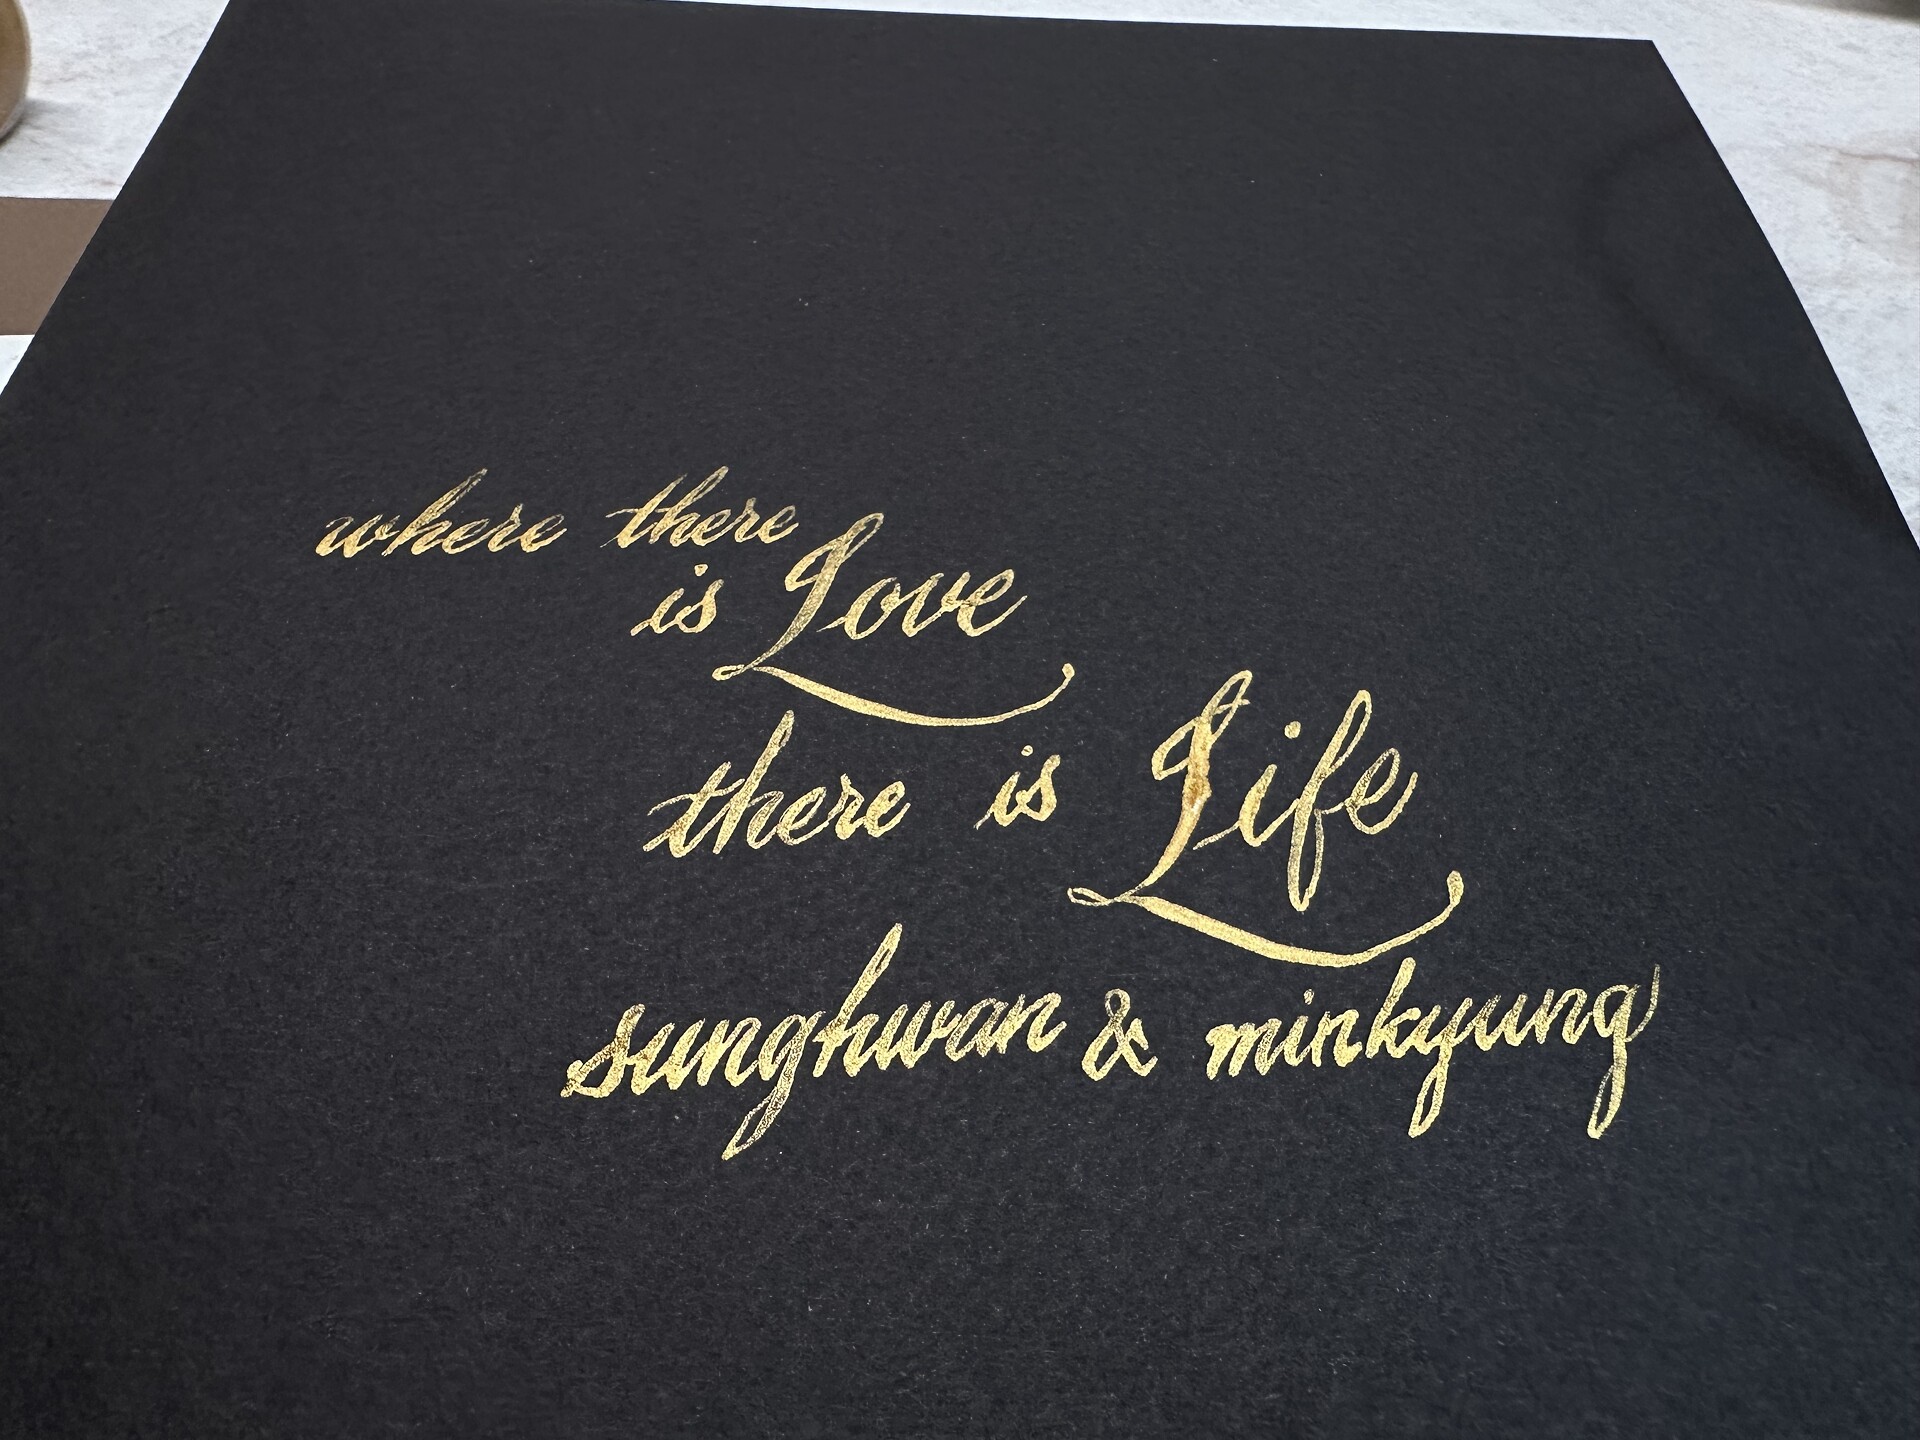 where there
is Love
there is Life
sunghwan & minkyung